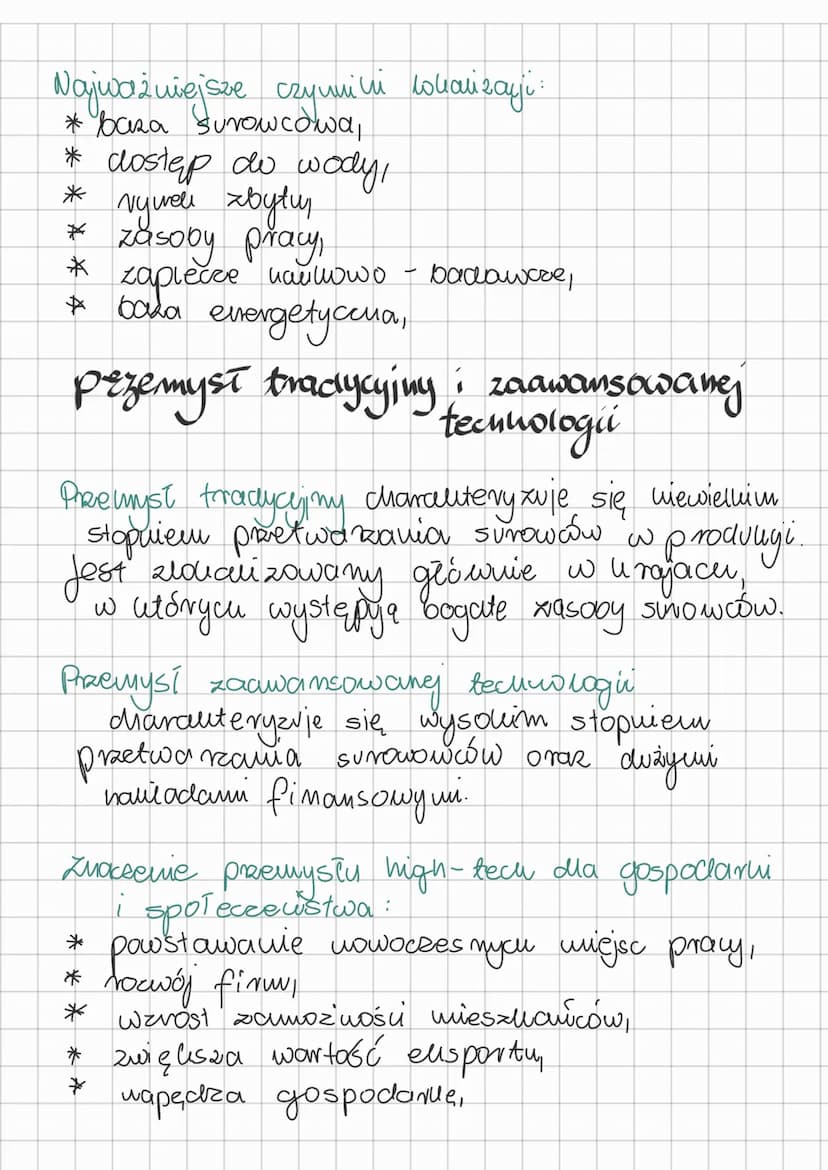 Najważniejsze czynniki lokalizacji:
* baza surowcowa,
* dostęp do wody,
* rynek zbytu,
* zasoby pracy,
* zaplecze naukowo - badawcze,
* baza energetyczna,
przemysł tradycyjny i zaawansowanej
technologii
Przemysł tradycyjny charakteryzuje się niewielkim
stopniem przetwarzania surowców w produkcji.
Jest zlokalizowany głównie w krajach,
w których występują bogate zasoby surowców.
Przemysł zaawansowanej technologii
charakteryzuje się wysokim stopniem
przetwarzania surowowców oraz dużymi
nakładami finansowymi.
Znaczenie przemysłu high-tech dla gospodarki
i społeczeństwa:
* powstawanie nowoczesnych miejsc pracy,
* rozwój firm,
* wzrost zamożności mieszkańców,
* zwiększa wartość eksportu,
* napędza gospodarkę,